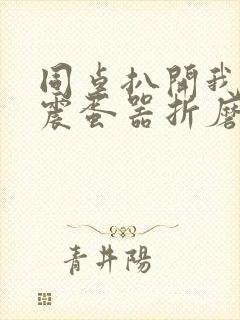 同桌扒開我
震蛋器折磨
青井陽